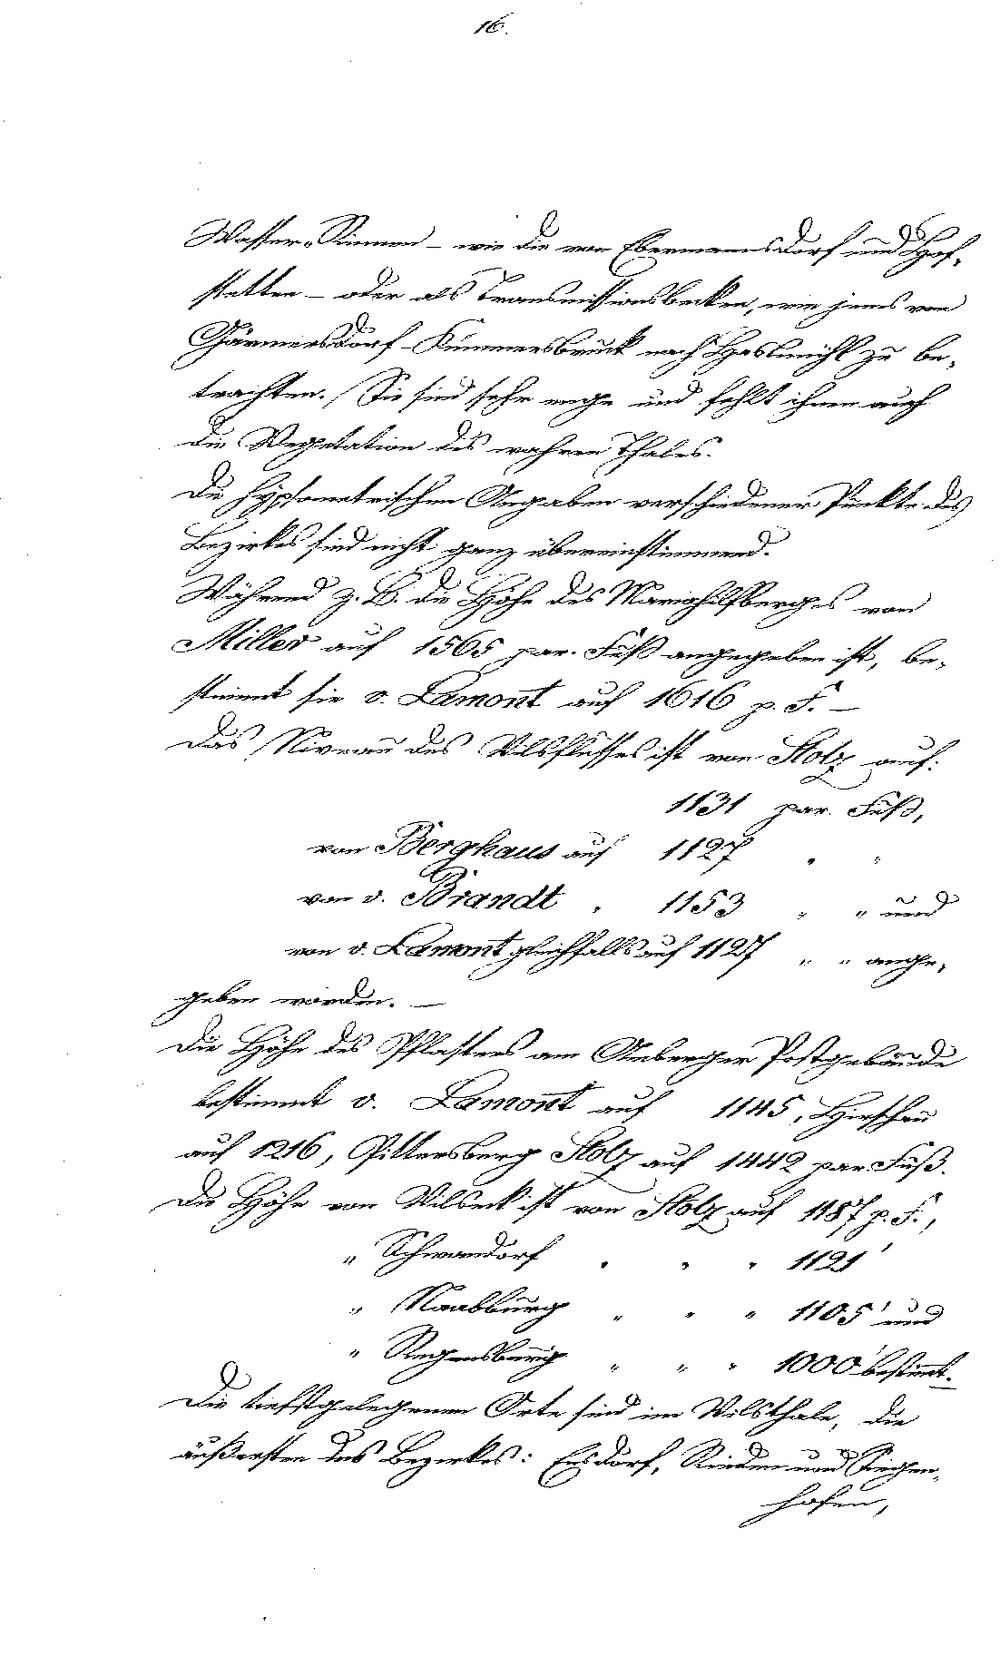 16.
Wasser-Rinnen – wie die von Ebermannsdorf und Hof-
stetten – oder als Transmissionsbecken, wie jenes von
Gärmersdorf-Kümmersbruck nach Haslmühl zu be-
trachten. / Sie sind sehr enge und fehlt ihnen auch
die Vegetation des wahren Thales.
Die hypsometrischen Angaben verschiedener Punkte des
Bezirkes sind nicht ganz übereinstimmend.
Während z. B. die Höhe des Mariahilfberges von
Miller auf 1565 par. Fuß angegeben ist, be-
stimmt sie v. Lamont auf 1616 p. F. –
Das Niveau des Vilsflusses ist von Stolz auf:
1131 par. Fuß,
von Berghaus auf 1127 " "
von v. Brandt " 1153 " " und
von v. Lamont gleichfalls auf 1127 " " ange-
geben worden. –
Die Höhe des Pflasters am Amberger Postgebäude
bestimmt v. Lamont auf 1145, Hirschau
auf 1216, Pittersberg Stolz auf 1442 par. Fuß.
Die Höhe von Vilseck ist von Stolz auf 1187 p. F.,
" Schwandorf " " " 1121'
" Naabburg " " " 1105' und
" Regensburg " " " 1000' bestimmt. –
Die tiefstgelegenen Orte sind im Vilsthale, die
äußersten des Bezirkes: Ensdorf, Rieden und Siegen-
hofen,